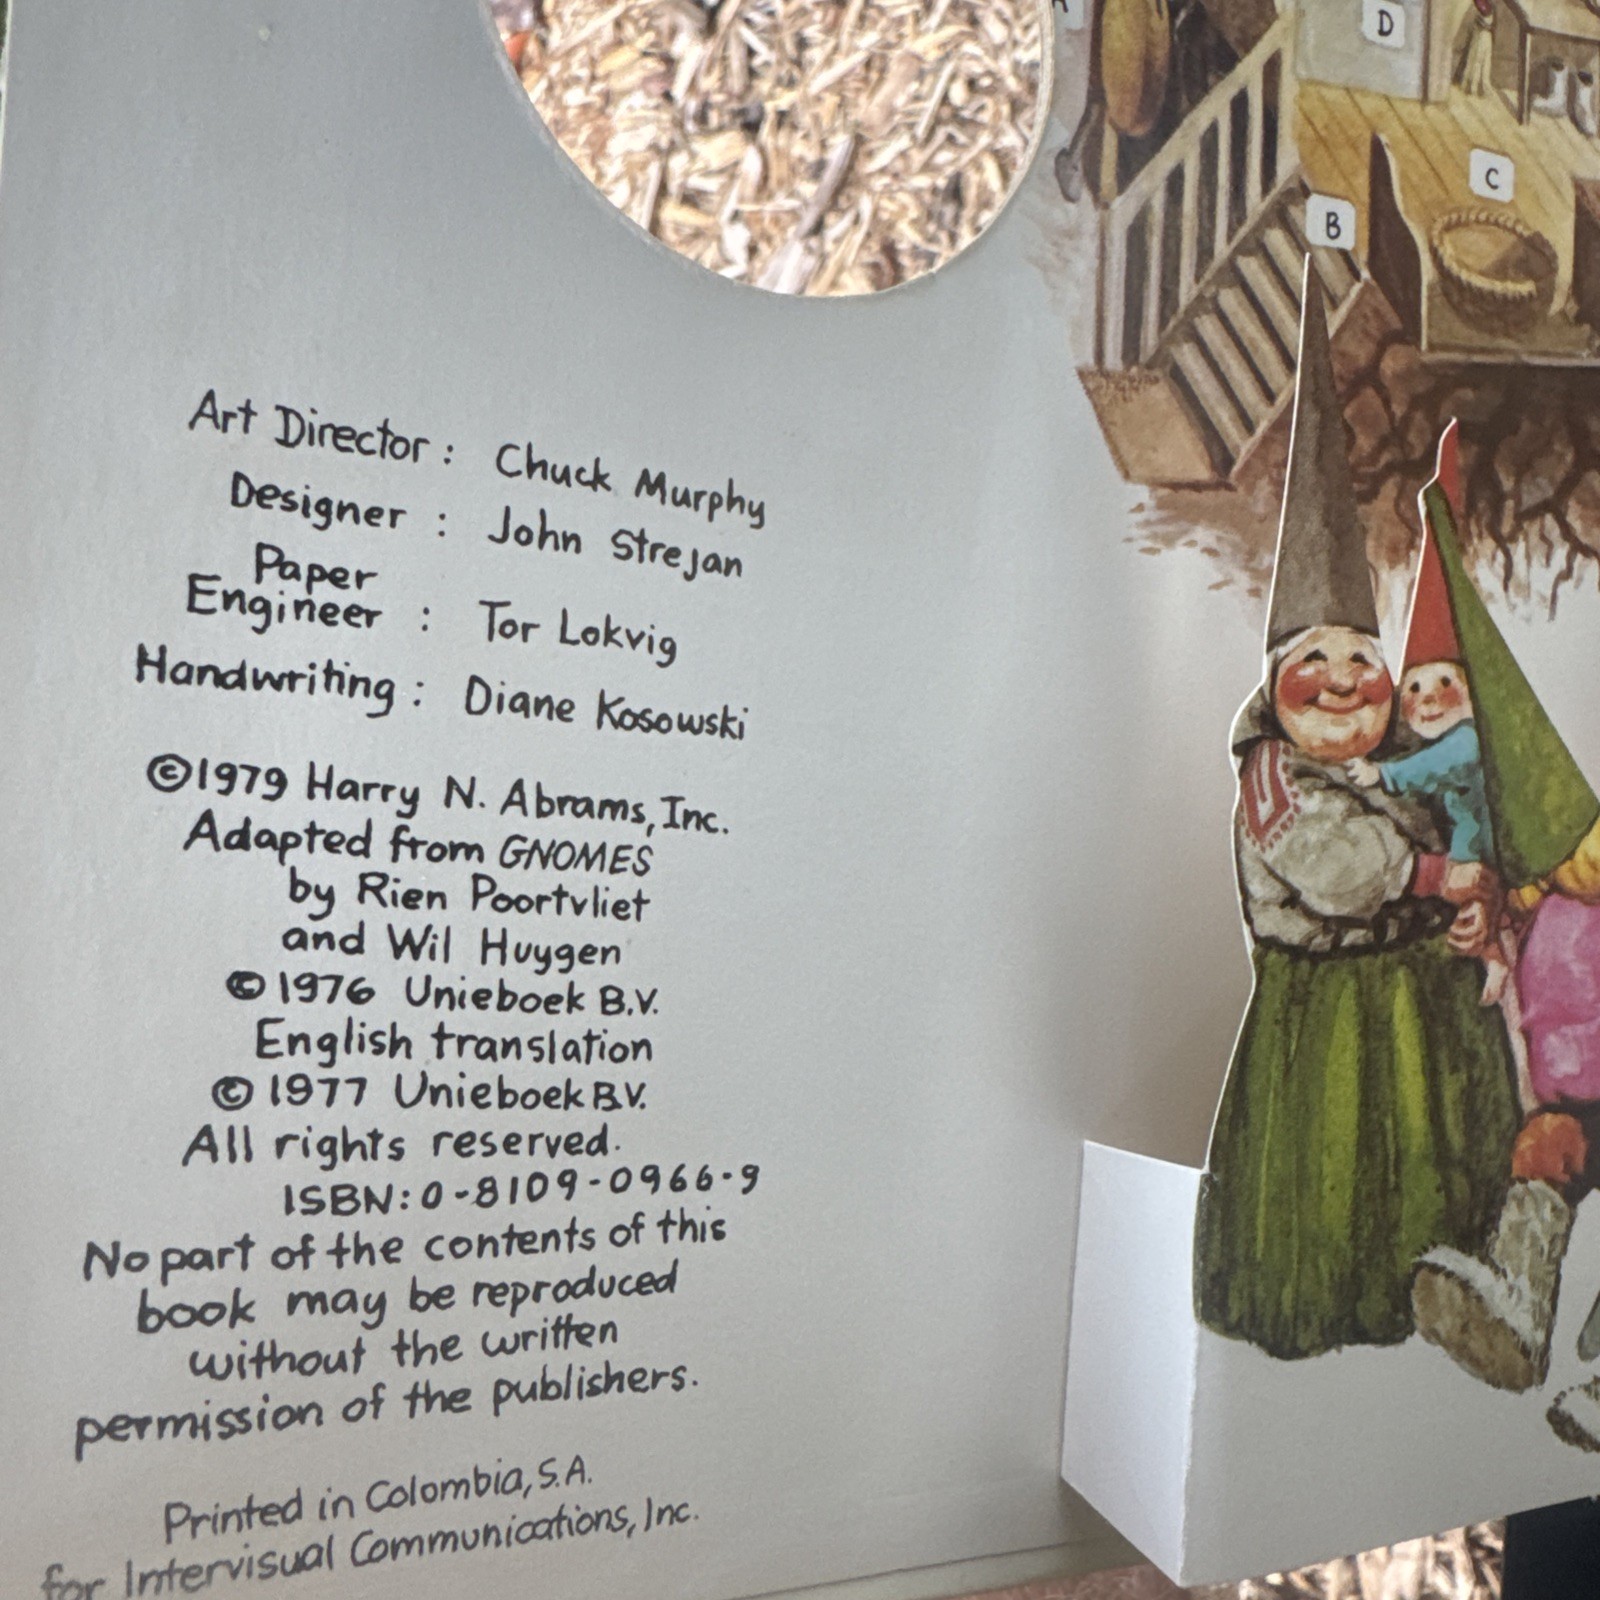 Art Director: Chuck Murphy
Designer: John Strejan
Paper
Engineer: Tor Lokvig
Handwriting: Diane Kosowski
©1979 Harry N. Abrams, Inc.
Adapted from GNOMES
by Rien Poortvliet
and Wil Huygen
©1976 Unieboek B.V.
English translation
©1977 Unieboek B.V.
All rights reserved.
ISBN: 0-8109-0966-9
No part of the contents of this
book may be reproduced
without the written
permission of the publishers.
Printed in Colombia, S.A.
for Intervisual Communications, Inc.
A
D
C
B